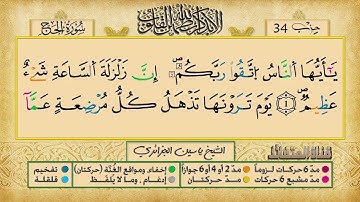 حزب 34
ألا بذكر الله تطمئن القلوب
سورة الحج
يَٰٓأَيُّهَا اَ۬لنَّاسُ اُ۪تَّقُواْ رَبَّكُمُۥٓۖ إِنَّ زَلْزَلَةَ اَ۬لسَّاعَةِ شَےْءٌ
عَظِيمٞۖ ١ يَوْمَ تَرَوْنَهَا تَذْهَلُ كُلُّ مُرْضِعَةٍ عَمَّآ
الشيخ ياسين الجزائري
مدّ 6 حركات لزوماً مدّ 2 أو 4 أو 6 جوازاً إخفاء، ومواقع الغُنَّة (حركتان) تفخيم
مدّ مشبع 6 حركات مدّ حركتان إدغام، وما لا يُلفَظ قلقلة